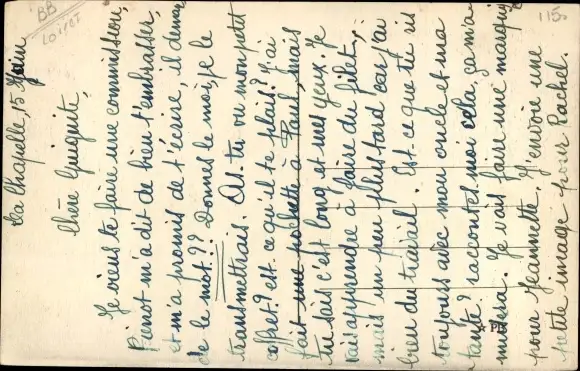 BB
LOIRET
115
La Chapelle, 15 Juin
Chère Guiguite,
Je viens te faire une commission,
Pierrot m'a dit de bien t'embrasser,
et m'a promis de t'écrire, il demande
de le mot?? Donnes le moi, je le
transmettrai. As-tu vu mon petit
coffret? est-ce qu'il te plait? J'ai
fait une pochette à Paul, mais
tu sais c'est long et mes yeux. Je
vais apprendre à faire du filet,
mais un peu plus tard car j'ai
bien du travail. Est-ce que tu ris
toujours avec mon oncle et ma
tante? raccontes-moi cela, ça m'a-
musera. Je vais faire une marquise
pour Jeannette. J'envoie une
petite image pour Rachel.